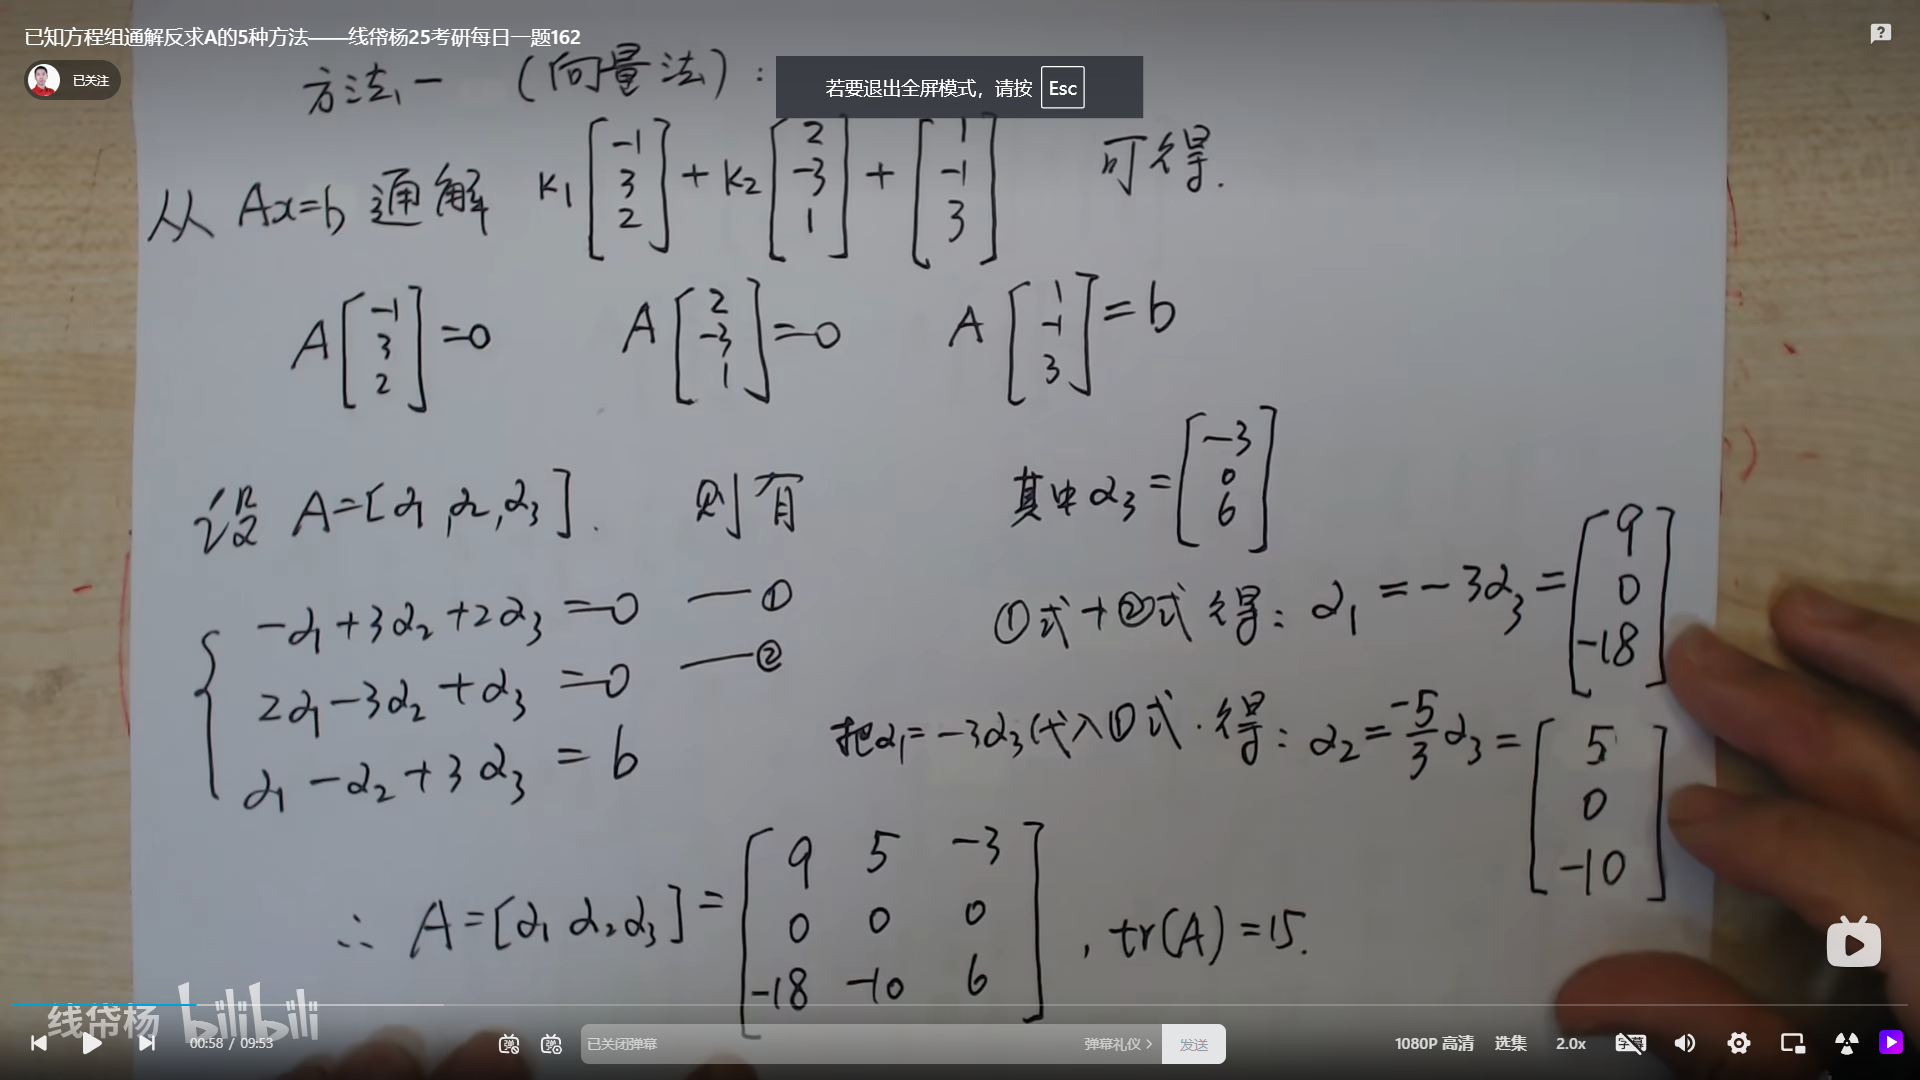 已知方程组通解反求A的5种方法——线帒杨25考研每日一题162
已关注
若要退出全屏模式，请按 Esc
方法一 （向量法）：
从 Ax=b 通解 k₁[-1 3 2] + k₂[2 -3 1] + [1 -1 3] 可得.
A[-1 3 2]=0 A[2 -3 1]=0 A[1 -1 3]=b
设 A=[α₁,α₂,α₃]. 则有
-α₁+3α₂+2α₃=0 —①
2α₁-3α₂+α₃=0 —②
α₁-α₂+3α₃=b
其中 α₃=[-3 0 6]
①式+②式得: α₁=-3α₃=[9 0 -18]
把α₁=-3α₃代入①式.得: α₂=-5/3α₃=[5 0 -10]
∴ A=[α₁ α₂ α₃]=[9 5 -3
0 0 0
-18 -10 6], tr(A)=15.
线帒杨 bilibili
00:58 / 09:53
弹 弹
已关闭弹幕
弹幕礼仪 >
发送
1080P 高清
选集
2.0x
字幕